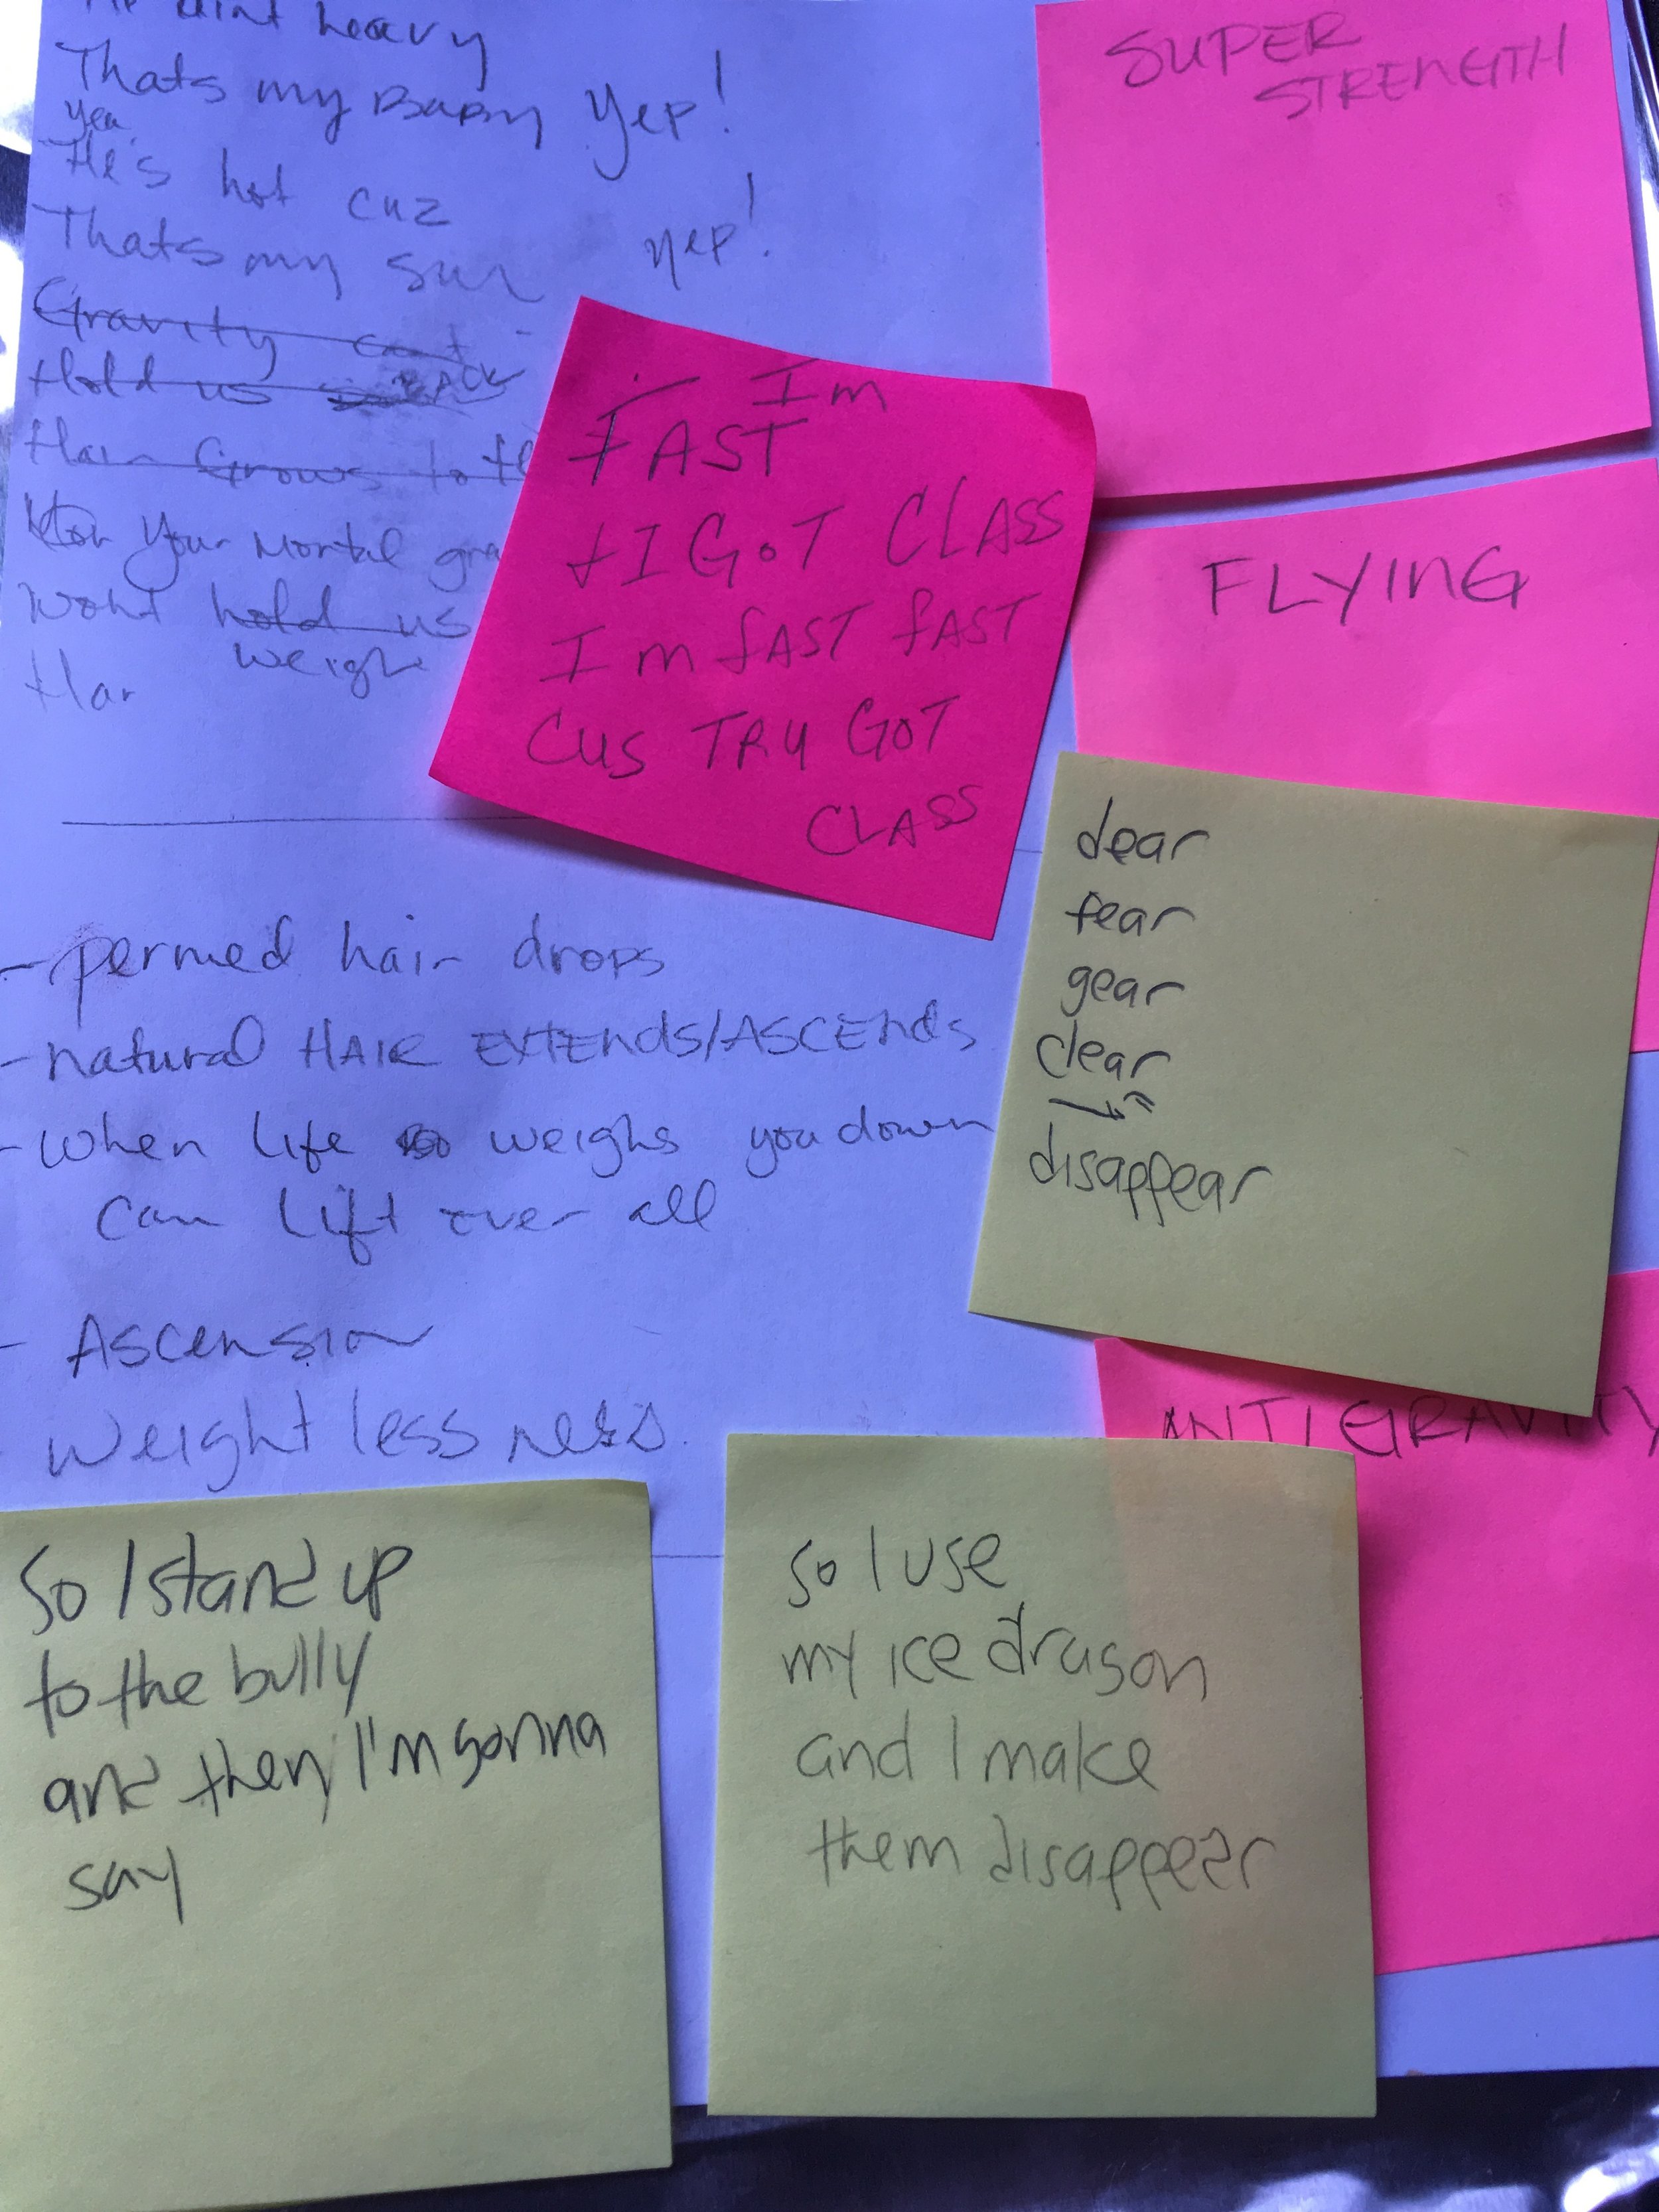 aint heavy
Thats my Baby Yep!
yea
He's hot cuz
Thats my sun yep!
Gravity cant
Hold us BACK
Hair Grows to
Your Mortal gra
Wont hold us
weigh
Har
SUPER
STRENGTH
Im
FAST
+ I GOT CLASS
Im fAST fAST
CUS TRU GOT
CLASS
FLYING
dear
fear
gear
clear
disappear
- permed hair drops
- natural HAIR EXTEnds/ASCEnds
- when life weighs you down
can lift over all
- Ascension
weightlessness
ANTIGRAVITY
So I stand up
to the bully
and then I'm gonna
say
so I use
my ice dragon
and I make
them disappear